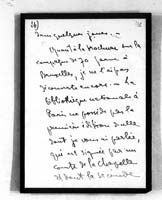 dans quelques jours. —
Quant à la brochure sur la
campagne de 70 parue à
Bruxelles, je ne l'ai pas
découverte encore. — La
Bibliothèque nationale à
Paris ne possède pas la
première édition de celle
dont je vous ai parlée
qui est signée par un
comte de la Chapelle
et dont la seconde